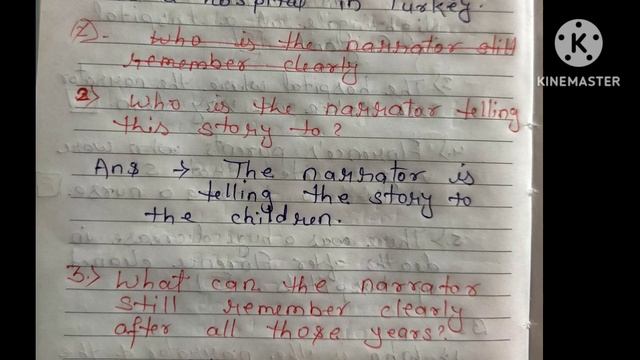 a hospital in Turkey.
2). who is the narrator still
remember clearly
2) Who is the narrator telling
this story to?
Ans → The narrator is
telling the story to
the children.
3.) What can the narrator
still remember clearly
after all those years?
KINEMASTER